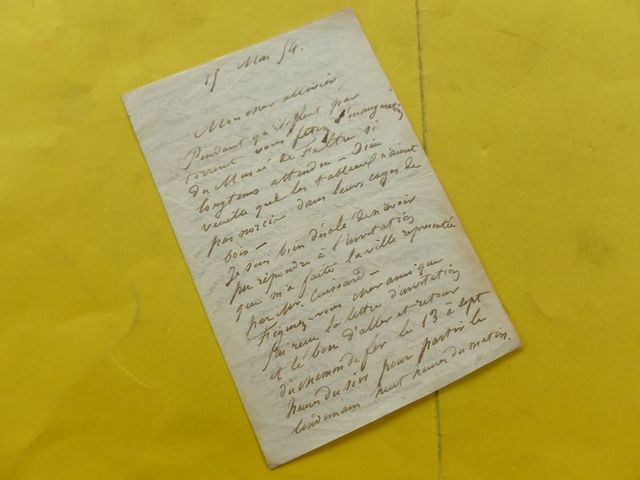 15 Mai 54.
Mon cher ollivier,
Pendant qu'il pleut par
torrent vous fetez l'inauguration
du Musée de Feltre si
longtems attendu – Dieu
veuille que les tableaux n'aient
pas noirci dans leurs cages de
bois –
Je suis bien désolé de n'avoir
pu répondre à l'invitation
que m'a faite la ville representée
par Mr.
Figurez-vous cher ami que
J'ai recu la lettre d'invitation
et le bon d'aller et retour
du chemin de fer le 13 à sept
heures du soir pour partir le
lendemain huit heures du matin.